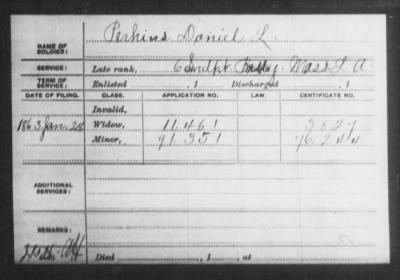 NAME OF SOLDIER: Perkins Daniel L.
SERVICE: Late rank, Mass L. A.
TERM OF SERVICE: Enlisted , 1 Discharged , 1
DATE OF FILING. CLASS. APPLICATION NO. LAW. CERTIFICATE NO.
Invalid,
1863 Jan. 28 Widow, 11.461 3827
Minor, 91.351 76.244
ADDITIONAL SERVICES:
REMARKS:
Died , 1 , at